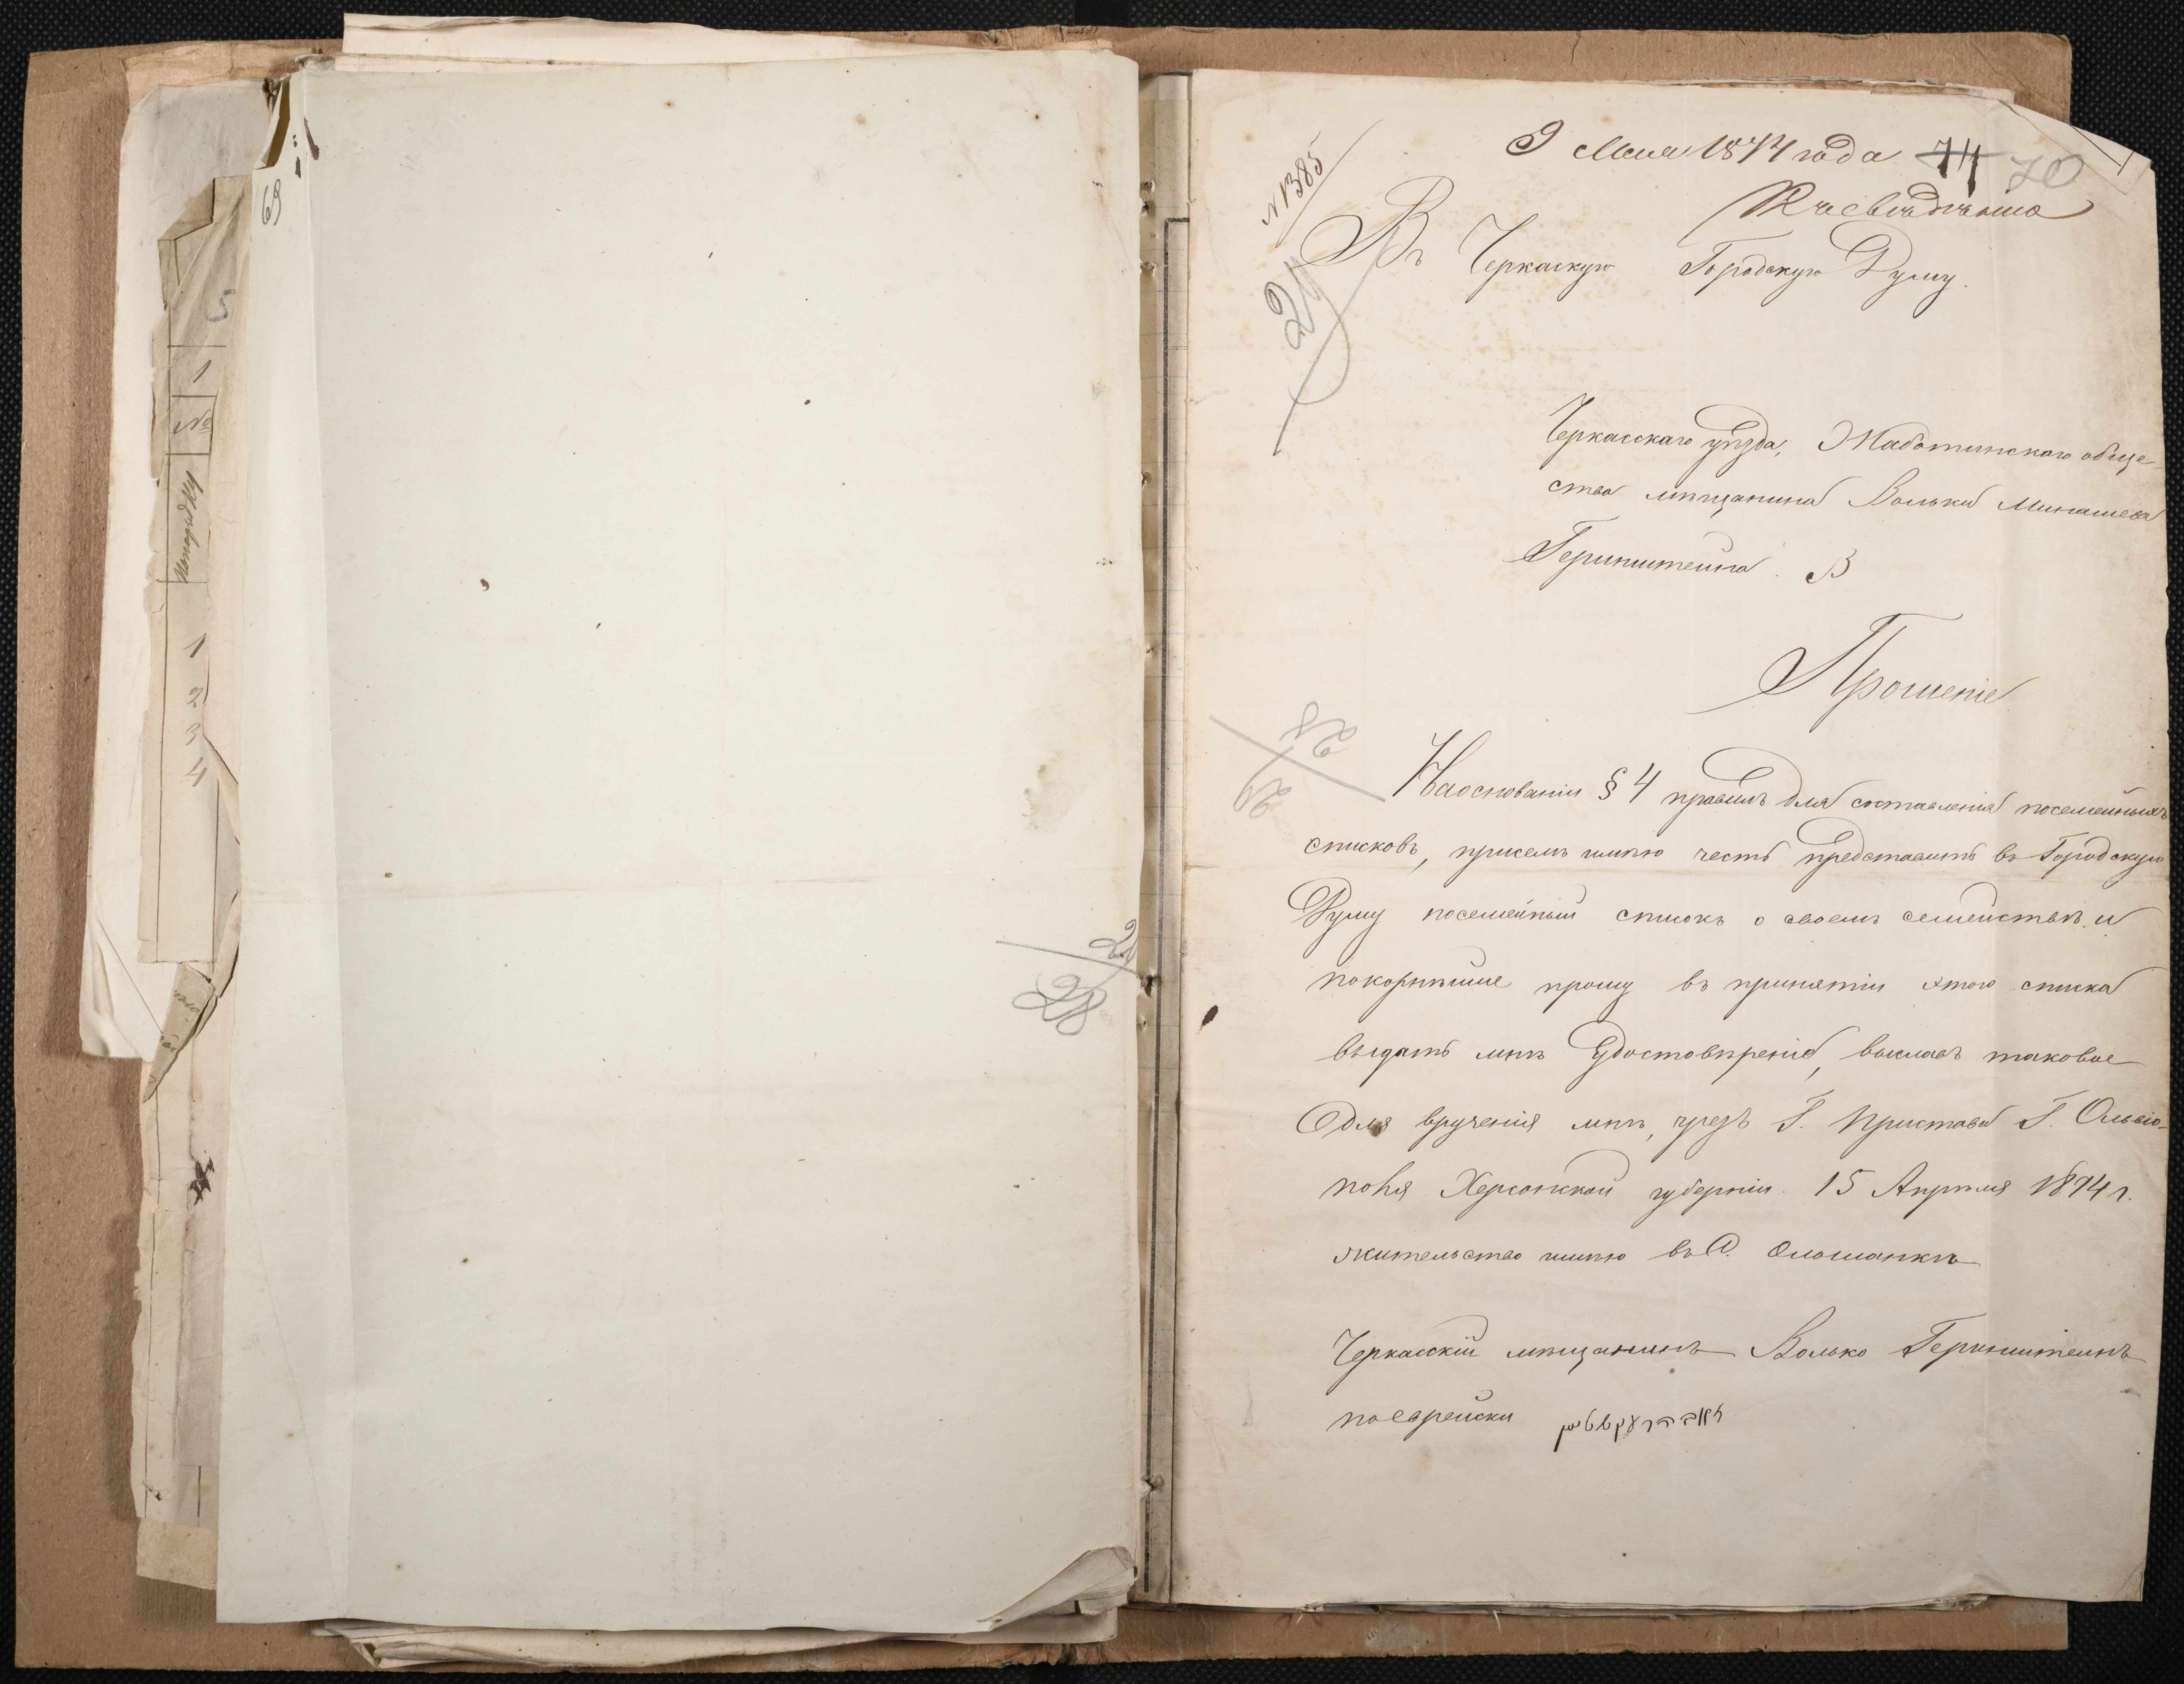 69
5
1
№
1
2
3
4
28
9 Мая 1874 года 74 70
№ 1385
Къ свѣдѣнію
Въ Черкаскую Городскую Думу.
Черкасскаго уѣзда, Жаботинскаго обще-
ства мѣщанина Волька Минашева
Геринштейна. В
Прошеніе
На основаніи § 4 правилъ для составленія посемейныхъ
списковъ, присемъ имѣю честь представить въ Городскую
Думу посемейный списокъ о своемъ семействѣ и
покорнѣйше прошу въ принятіи этого списка
выдать мнѣ Удостовѣреніе, выславъ таковое
для врученія мнѣ, чрезъ Г. Пристава Г. Ольвіо-
поля Херсонской губерніи. 15 Апрѣля 1874 г.
жительство имѣю въ
Черкасскій мѣщанинъ Волько Геринштейнъ
по еврейски